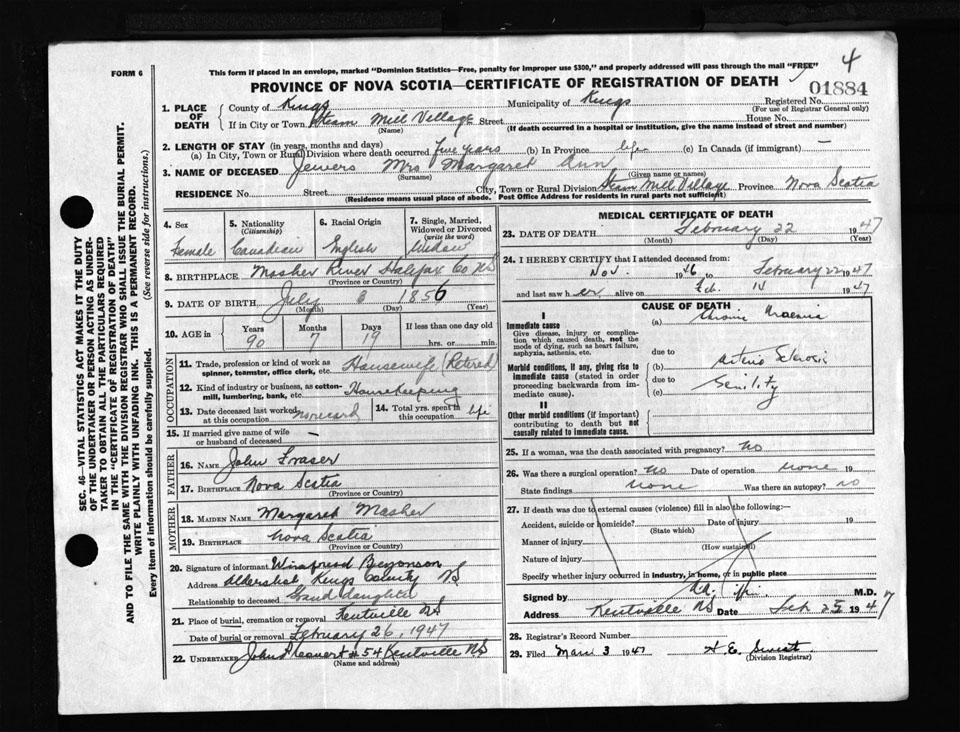 4
FORM 6
This form if placed in an envelope, marked "Dominion Statistics—Free, penalty for improper use $300," and properly addressed will pass through the mail "FREE"
PROVINCE OF NOVA SCOTIA—CERTIFICATE OF REGISTRATION OF DEATH
01884
1. PLACE OF DEATH
County of Kings Municipality of Kings Registered No.
(For use of Registrar General only)
If in City or Town Steam Mill Village Street House No.
(Name) (If death occurred in a hospital or institution, give the name instead of street and number)
2. LENGTH OF STAY (in years, months and days)
(a) In City, Town or Rural Division where death occurred five years (b) In Province life (c) In Canada (if immigrant) —
3. NAME OF DECEASED Jewers Mrs Margaret Ann
(Surname) (Given name or names)
RESIDENCE No. Street City, Town or Rural Division Steam Mill Village Province Nova Scotia
(Residence means usual place of abode. Post Office Address for residents in rural parts not sufficient)
4. Sex
Female
5. Nationality (Citizenship)
Canadian
6. Racial Origin
English
7. Single, Married, Widowed or Divorced (write the word)
Widow
8. BIRTHPLACE Mosher River Halifax Co NS
(Province or Country)
9. DATE OF BIRTH July 6 1856
(Month) (Day) (Year)
10. AGE in
Years Months Days If less than one day old
90 7 19 hrs. or min.
OCCUPATION
11. Trade, profession or kind of work as spinner, teamster, office clerk, etc. Housewife (Retired)
12. Kind of industry or business, as cotton-mill, lumbering, bank, etc. Housekeeping
13. Date deceased last worked at this occupation no record
14. Total yrs. spent in this occupation life
15. If married give name of wife or husband of deceased —
FATHER
16. NAME John Fraser
17. BIRTHPLACE Nova Scotia
(Province or Country)
MOTHER
18. MAIDEN NAME Margaret Mosher
19. BIRTHPLACE Nova Scotia
(Province or Country)
20. Signature of informant Winifred
Address Aldershot, Kings County NS
Relationship to deceased Grand daughter
21. Place of burial, cremation or removal Kentville NS
Date of burial or removal February 26, 1947
22. UNDERTAKER John # 54 Kentville NS
(Name and address)
MEDICAL CERTIFICATE OF DEATH
23. DATE OF DEATH February 22 1947
(Month) (Day) (Year)
24. I HEREBY CERTIFY that I attended deceased from:
Nov. 1946 to February 22 1947
and last saw her alive on Feb. 14 1947
CAUSE OF DEATH
I
Immediate cause
Give disease, injury or complication which caused death, not the mode of dying, such as heart failure, asphyxia, asthenia, etc.
(a) Chronic Uraemia
due to
Morbid conditions, if any, giving rise to immediate cause (stated in order proceeding backwards from immediate cause).
(b) Arterio Sclerosis
due to
(c) Senility
II
Other morbid conditions (if important) contributing to death but not causally related to immediate cause.
25. If a woman, was the death associated with pregnancy? no
26. Was there a surgical operation? No Date of operation none 19
State findings none Was there an autopsy? no
27. If death was due to external causes (violence) fill in also the following:—
Accident, suicide or homicide? Date of injury 19
(State which)
Manner of injury
(How sustained)
Nature of injury
Specify whether injury occurred in industry, in home, or in public place
Signed by M.D.
Address Kentville NS Date Feb 25 1947
28. Registrar's Record Number
29. Filed Mar. 3 1947 H. E.
(Division Registrar)
SEC. 46—VITAL STATISTICS ACT MAKES IT THE DUTY
OF THE UNDERTAKER OR PERSON ACTING AS UNDER-
TAKER TO OBTAIN ALL THE PARTICULARS REQUIRED
IN THE "CERTIFICATE OF REGISTRATION OF DEATH"
AND TO FILE THE SAME WITH THE DIVISION REGISTRAR WHO SHALL ISSUE THE BURIAL PERMIT.
WRITE PLAINLY WITH UNFADING INK. THIS IS A PERMANENT RECORD.
Every item of information should be carefully supplied. (See reverse side for instructions.)